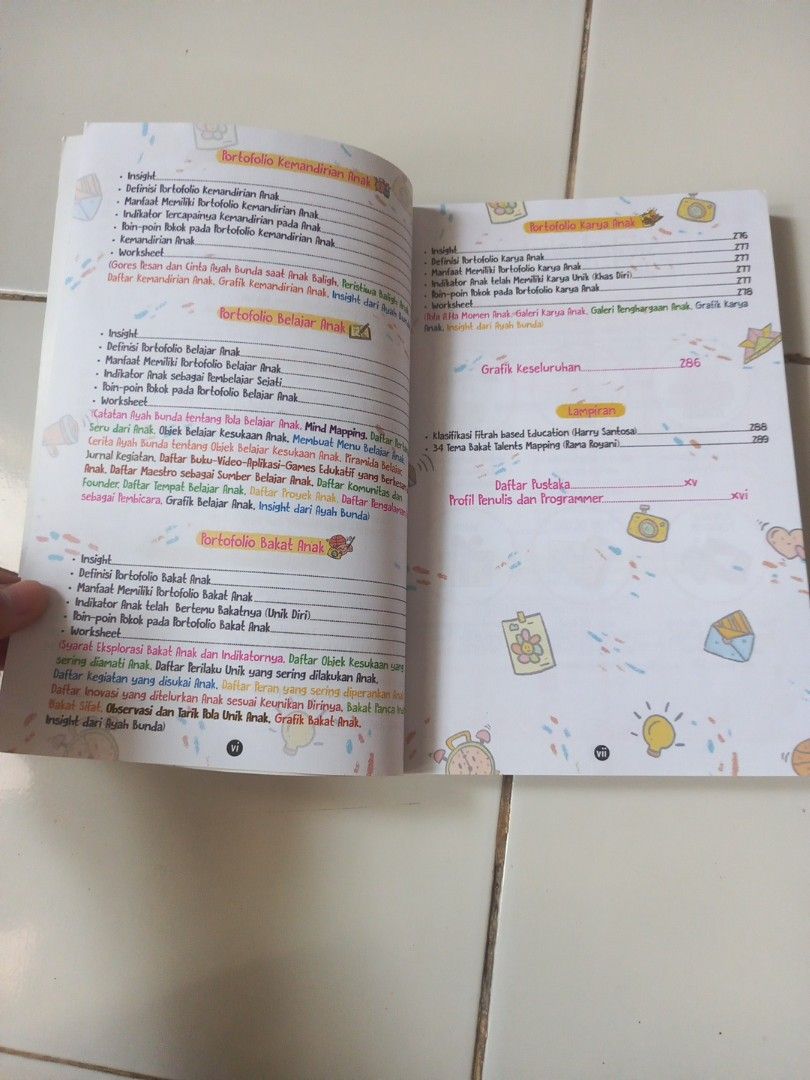 Portofolio Kemandirian Anak
• Insight
• Definisi Portofolio Kemandirian Anak
• Manfaat Memiliki Portofolio Kemandirian Anak
• Indikator Tercapainya kemandirian pada Anak
• Poin-poin Pokok pada Portofolio Kemandirian Anak
• Kemandirian Anak
• Worksheet
(Gores Pesan dan Cinta Ayah Bunda saat Anak Baligh, Peristiwa Baligh Anak,
Daftar Kemandirian Anak, Grafik Kemandirian Anak, Insight dari Ayah Bunda)
Portofolio Belajar Anak
• Insight
• Definisi Portofolio Belajar Anak
• Manfaat Memiliki Portofolio Belajar Anak
• Indikator Anak sebagai Pembelajar Sejati
• Poin-poin Pokok pada Portofolio Belajar Anak
• Worksheet
(Catatan Ayah Bunda tentang Pola Belajar Anak, Mind Mapping, Daftar
Seru dari Anak, Objek Belajar Kesukaan Anak, Membuat Menu Belajar Anak
Cerita Ayah Bunda tentang Objek Belajar Kesukaan Anak, Piramida Belajar,
Jurnal Kegiatan, Daftar Buku-Video-Aplikasi-Games Edukatif yang Berkesan
Anak, Daftar Maestro sebagai Sumber Belajar Anak, Daftar Komunitas dan
Founder, Daftar Tempat Belajar Anak, Daftar Proyek Anak, Daftar Pengalaman
sebagai Pembicara, Grafik Belajar Anak, Insight dari Ayah Bunda)
Portofolio Bakat Anak
• Insight
• Definisi Portofolio Bakat Anak
• Manfaat Memiliki Portofolio Bakat Anak
• Indikator Anak telah Bertemu Bakatnya (Unik Diri)
• Poin-poin Pokok pada Portofolio Bakat Anak
• Worksheet
(Syarat Eksplorasi Bakat Anak dan Indikatornya, Daftar Objek Kesukaan yang
sering diamati Anak, Daftar Perilaku Unik yang sering dilakukan Anak,
Daftar Kegiatan yang disukai Anak, Daftar Peran yang sering diperankan Anak
Daftar Inovasi yang ditelurkan Anak sesuai Keunikan Dirinya, Bakat Panca
Bakat Sifat, Observasi dan Tarik Pola Unik Anak, Grafik Bakat Anak,
Insight dari Ayah Bunda)
vi
Portofolio Karya Anak
• Insight 276
• Definisi Portofolio Karya Anak 277
• Manfaat Memiliki Portofolio Karya Anak 277
• Indikator Anak telah Memiliki Karya Unik (Khas Diri) 277
• Poin-poin Pokok pada Portofolio Karya Anak 277
• Worksheet 278
(Pola AHa Momen Anak, Galeri Karya Anak, Galeri Penghargaan Anak, Grafik Karya
Anak, Insight dari Ayah Bunda)
Grafik Keseluruhan 286
Lampiran
• Klasifikasi Fitrah based Education (Harry Santosa) 288
• 34 Tema Bakat Talents Mapping (Rama Royani) 289
Daftar Pustaka xv
Profil Penulis dan Programmer xvi
vii